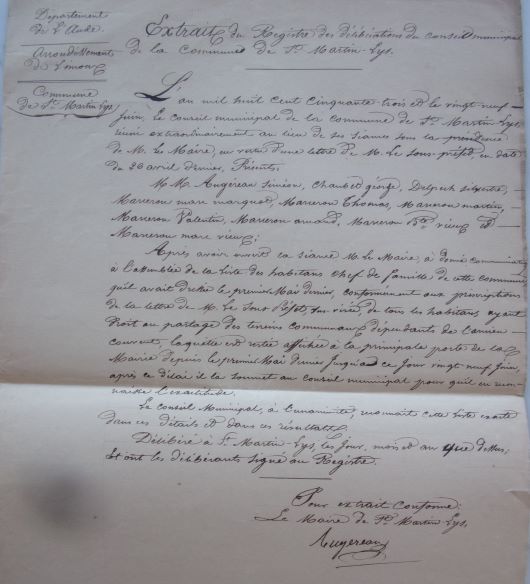 Département
de l'Aude.
Arrondissement
de Limoux
Commune
de St. Martin-Lys.
Extrait du Registre des délibérations du conseil municipal
de la Commune de St. Martin-Lys.
L'an mil huit cent cinquante trois et le vingt neuf
juin, le conseil municipal de la commune de St. Martin-Lys
réuni extraordinairement au lieu de ses séances sous la présidence
de M. le Maire, en vertu d'une lettre de M. le sous-préfet, en date
du 26 avril dernier, Présents,
M.M. Augereau Siméon, Chaubet george, Delpech silvestre,
Marceron marc marquos, Marceron Thomas, Marceron martin,
Marceron Valentin, Marceron amand, Marceron Bte. vieux et
Marceron marc vieux;
Après avoir ouvert la séance M. le Maire, a donné communication
à l'assemblée de la liste des habitans chef de famille de cette commune
qu'il avait dressée le premier Mai dernier, conformément aux prescriptions
de la lettre de M. le Sous Préfet, de tous les habitans ayant
droit au partage des terrains communaux dépendants de l'ancien
couvent, laquelle est restée affichée à la principale porte de la
Mairie depuis le premier Mai dernier jusqu'à ce jour vingt neuf juin,
après ce délai il la soumet au conseil municipal pour qu'il en recon-
naisse l'exactitude.
Le Conseil Municipal, à l'unanimité, reconnait cette liste exacte
dans ces détails et dans ces résultats.
Délibéré à St. Martin-Lys, les jour, mois et an que dessus;
Et ont les délibérants signé au Registre.
Pour extrait conforme:
Le Maire de St. Martin-Lys.
Augereau